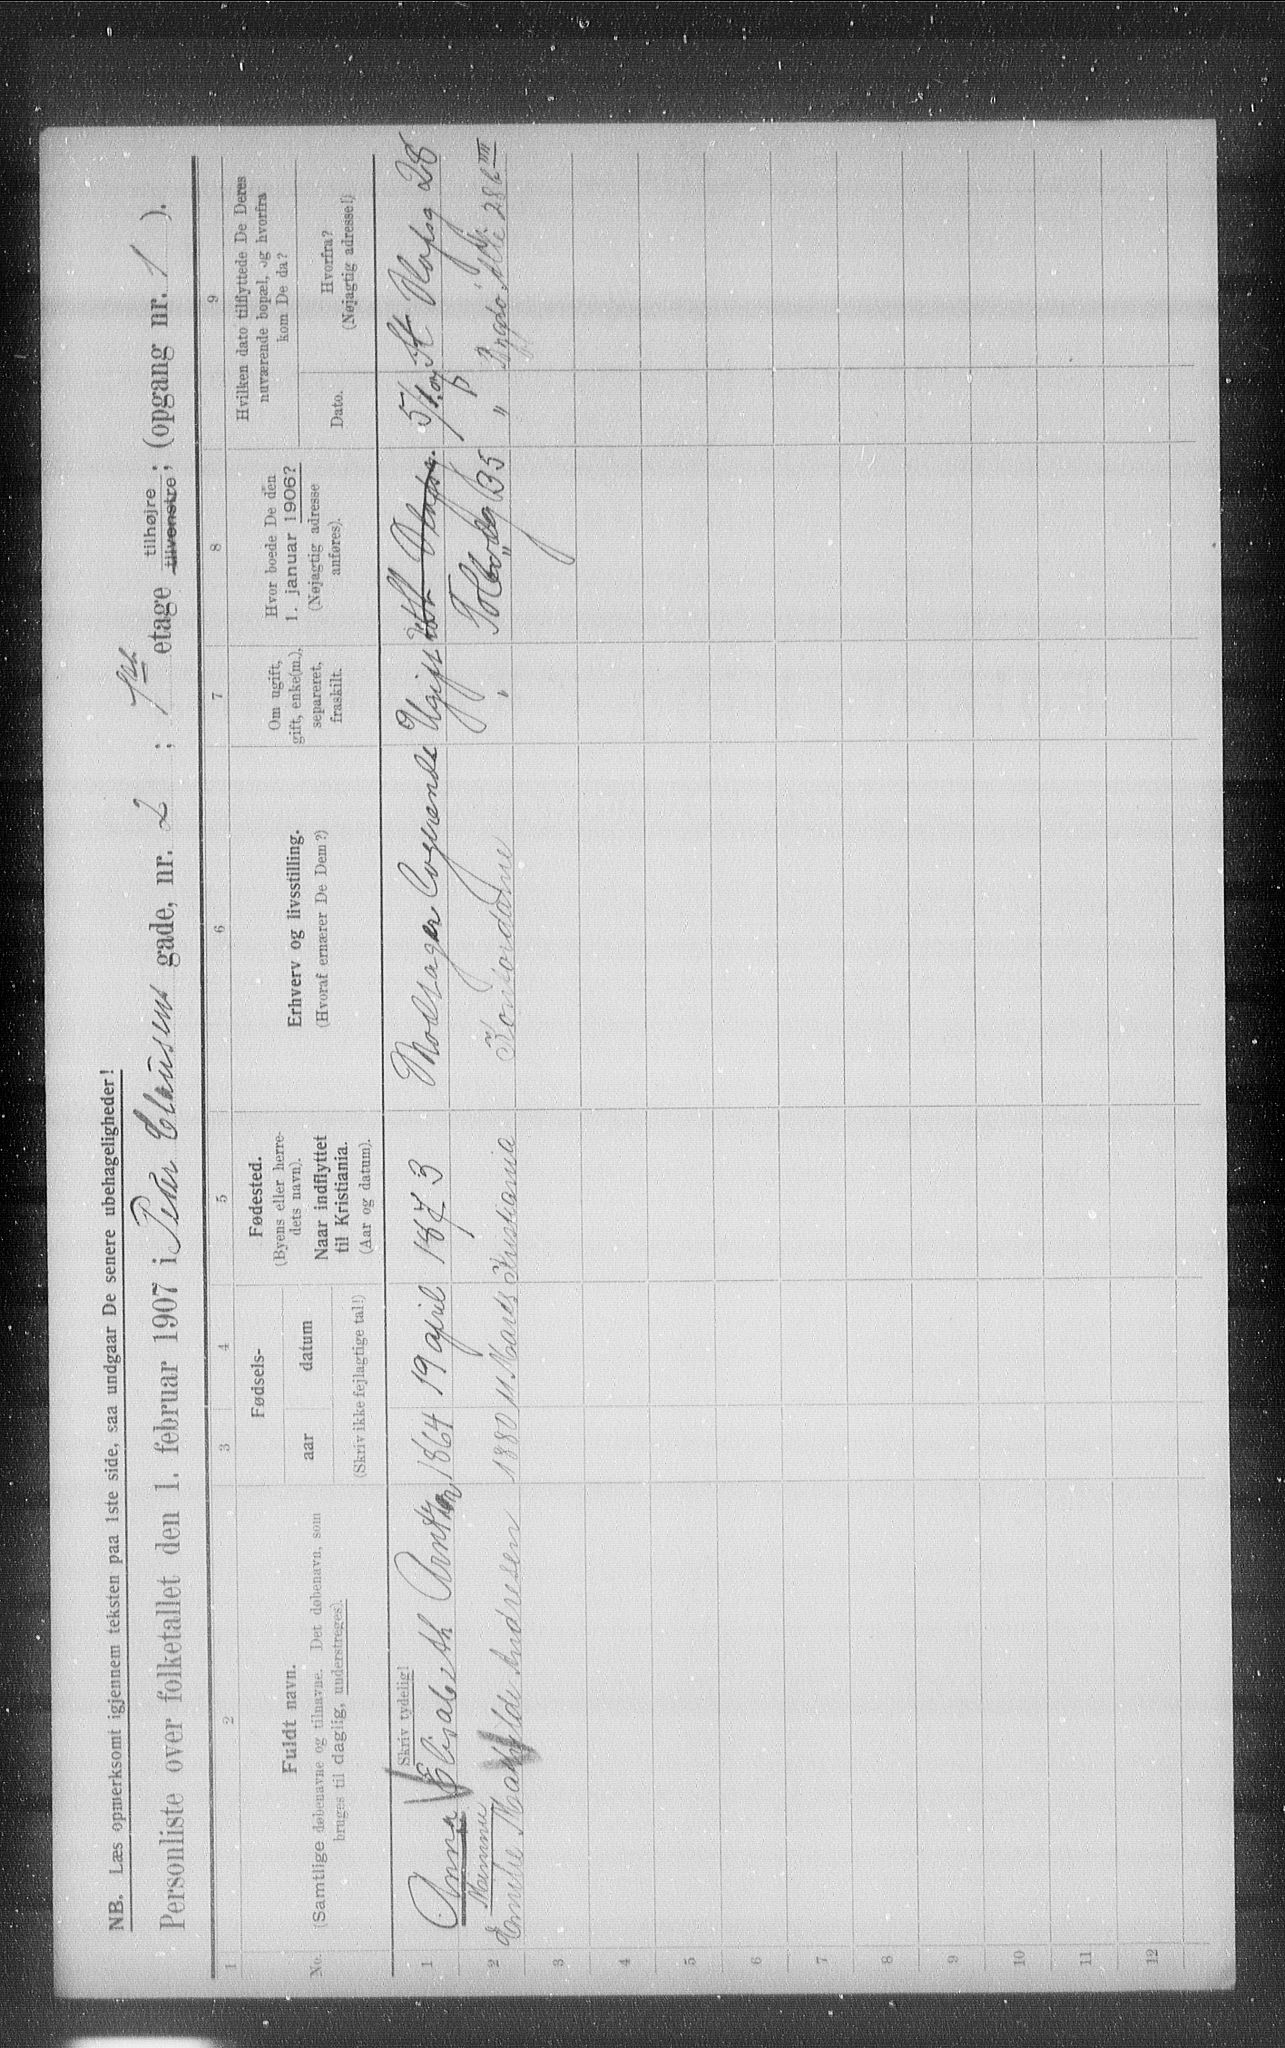 NB. Læs opmerksomt igjennem teksten paa 1ste side, saa undgaar De senere ubehageligheder!
Personliste over folketallet den 1. februar 1907 i Peder Clausens gade, nr. 2 ; 1ste etage tilhøjre tilvenstre; (opgang nr. 1 ).
1 2 3 4 5 6 7 8 9
No. Fuldt navn. (Samtlige døbenavne og tilnavne. Det døbenavn, som bruges til daglig, understreges).
Fødsels- aar datum (Skriv ikke fejlagtige tal!)
Fødested. (Byens eller herredets navn). Naar indflyttet til Kristiania. (Aar og datum).
Erhverv og livsstilling. (Hvoraf ernærer De Dem?)
Om ugift, gift, enke(m.), separeret, fraskilt.
Hvor boede De den 1. januar 1906? (Nøjagtig adresse anføres).
Hvilken dato tilflyttede De Deres nuværende bopæl, og hvorfra kom De da?
Dato. Hvorfra? (Nøjagtig adresse!)
Skriv tydelig!
1 Anna Elisabeth Arntzen 1864 19 april 1873 Modsager Logerende Ugift St. Olafsg. 5/1.07 St Olafsg 28
2 Emilie Mathilde Andresen 1880 11 Marts Kristiania Kontordame " Tolbodg 35 " Bygdø Alle 28 b
3
4
5
6
7
8
9
10
11
12